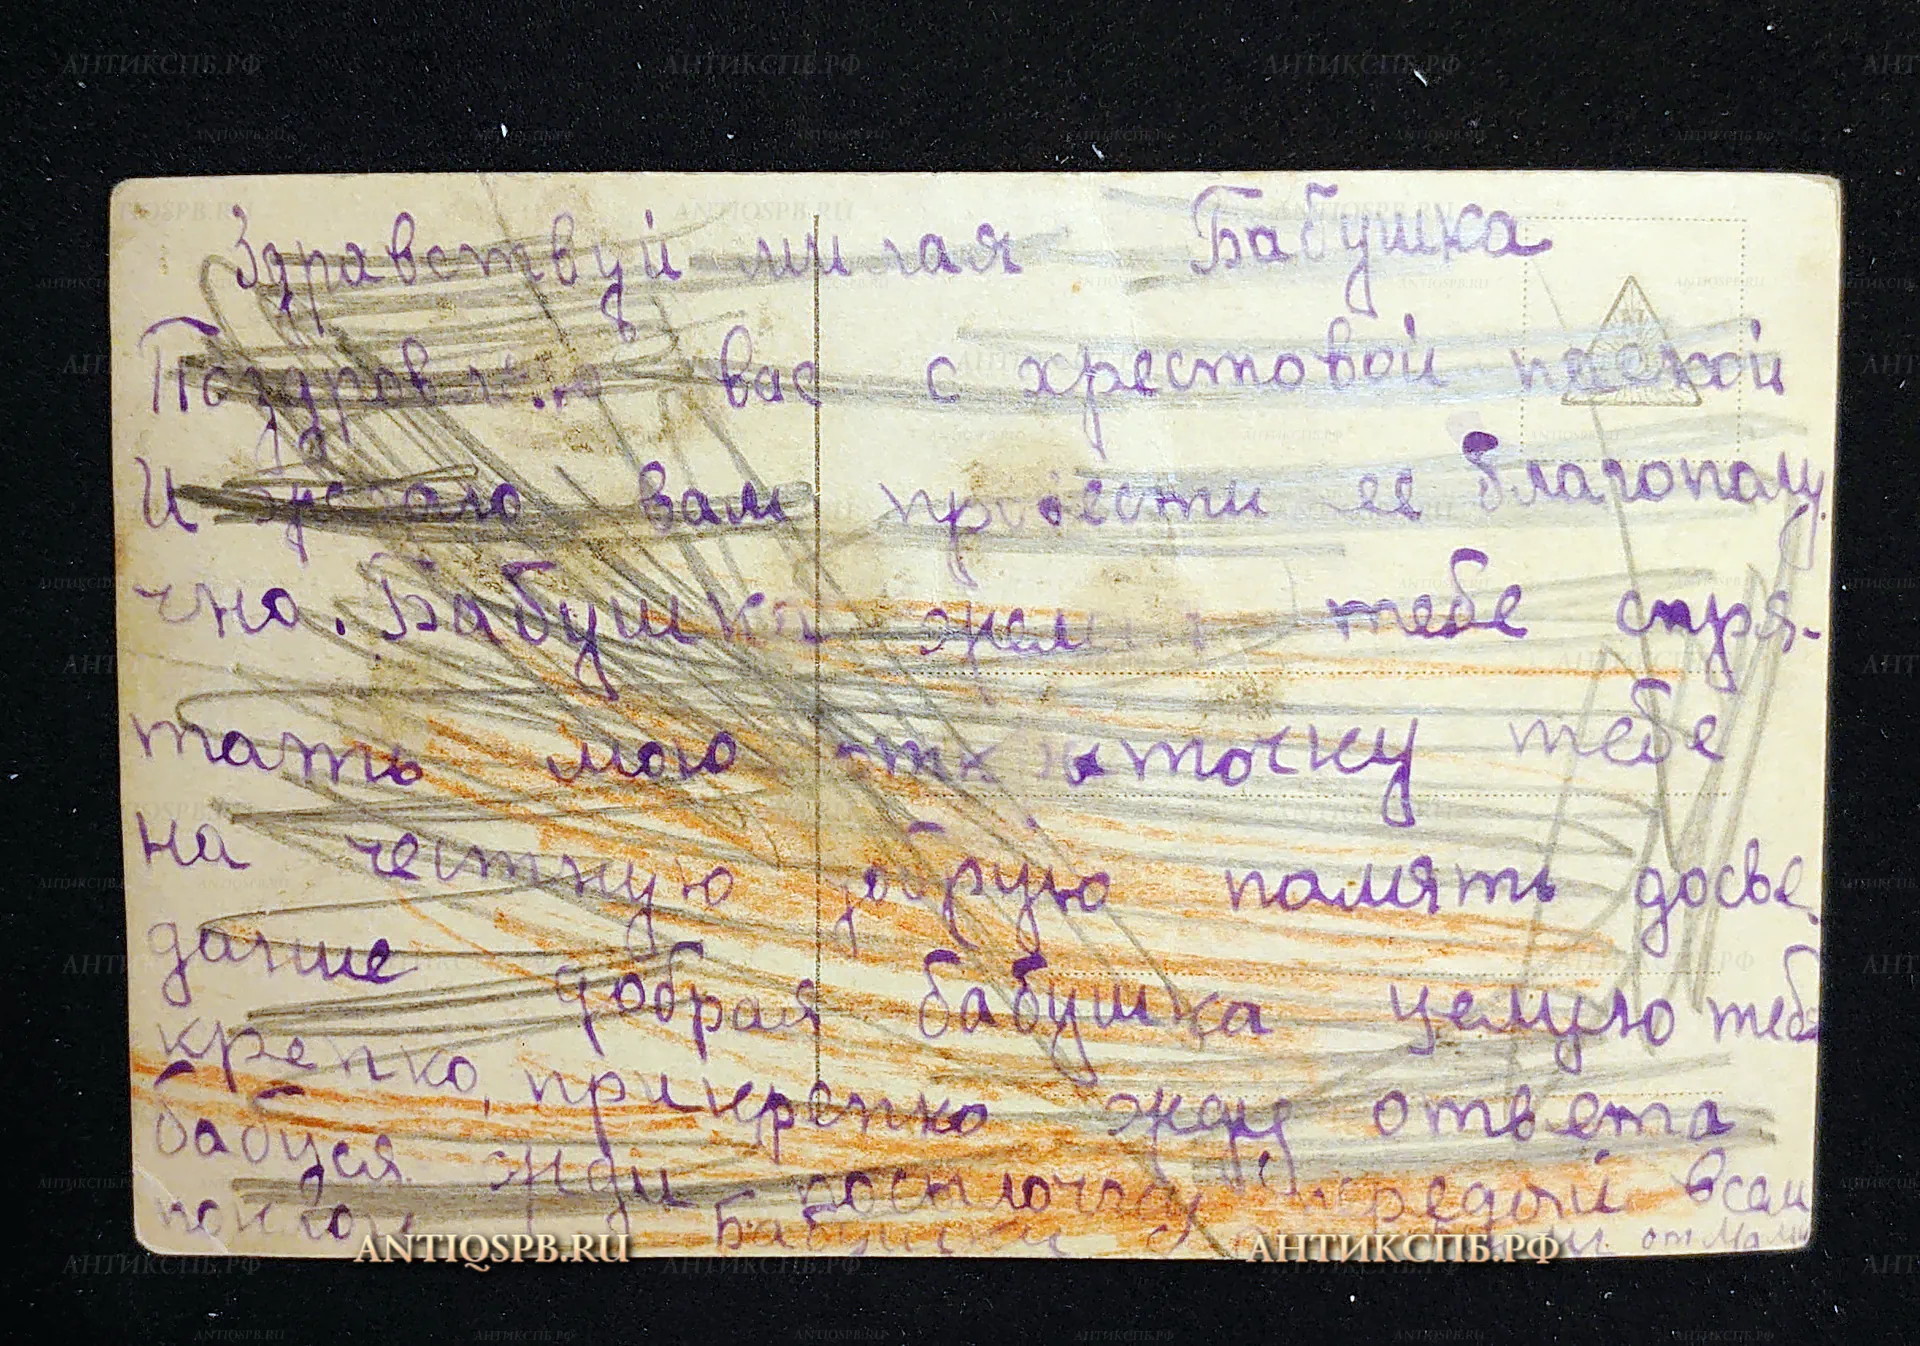 Здравствуй милая Бабушка
Поздровляю вас с хрестовой пасхой
И желаю вам провести ее благополу
чно. Бабушка желаю тебе спря-
тать мою откыточку тебе
на честную добрую память досве
дание добрая бабушка целую тебя
крепко, прикрепко жду ответа
бабуся жди посылочку передай всем
поклон Бабушки от Мамы
ANTIQSPB.RU
АНТИКСПБ.РФ